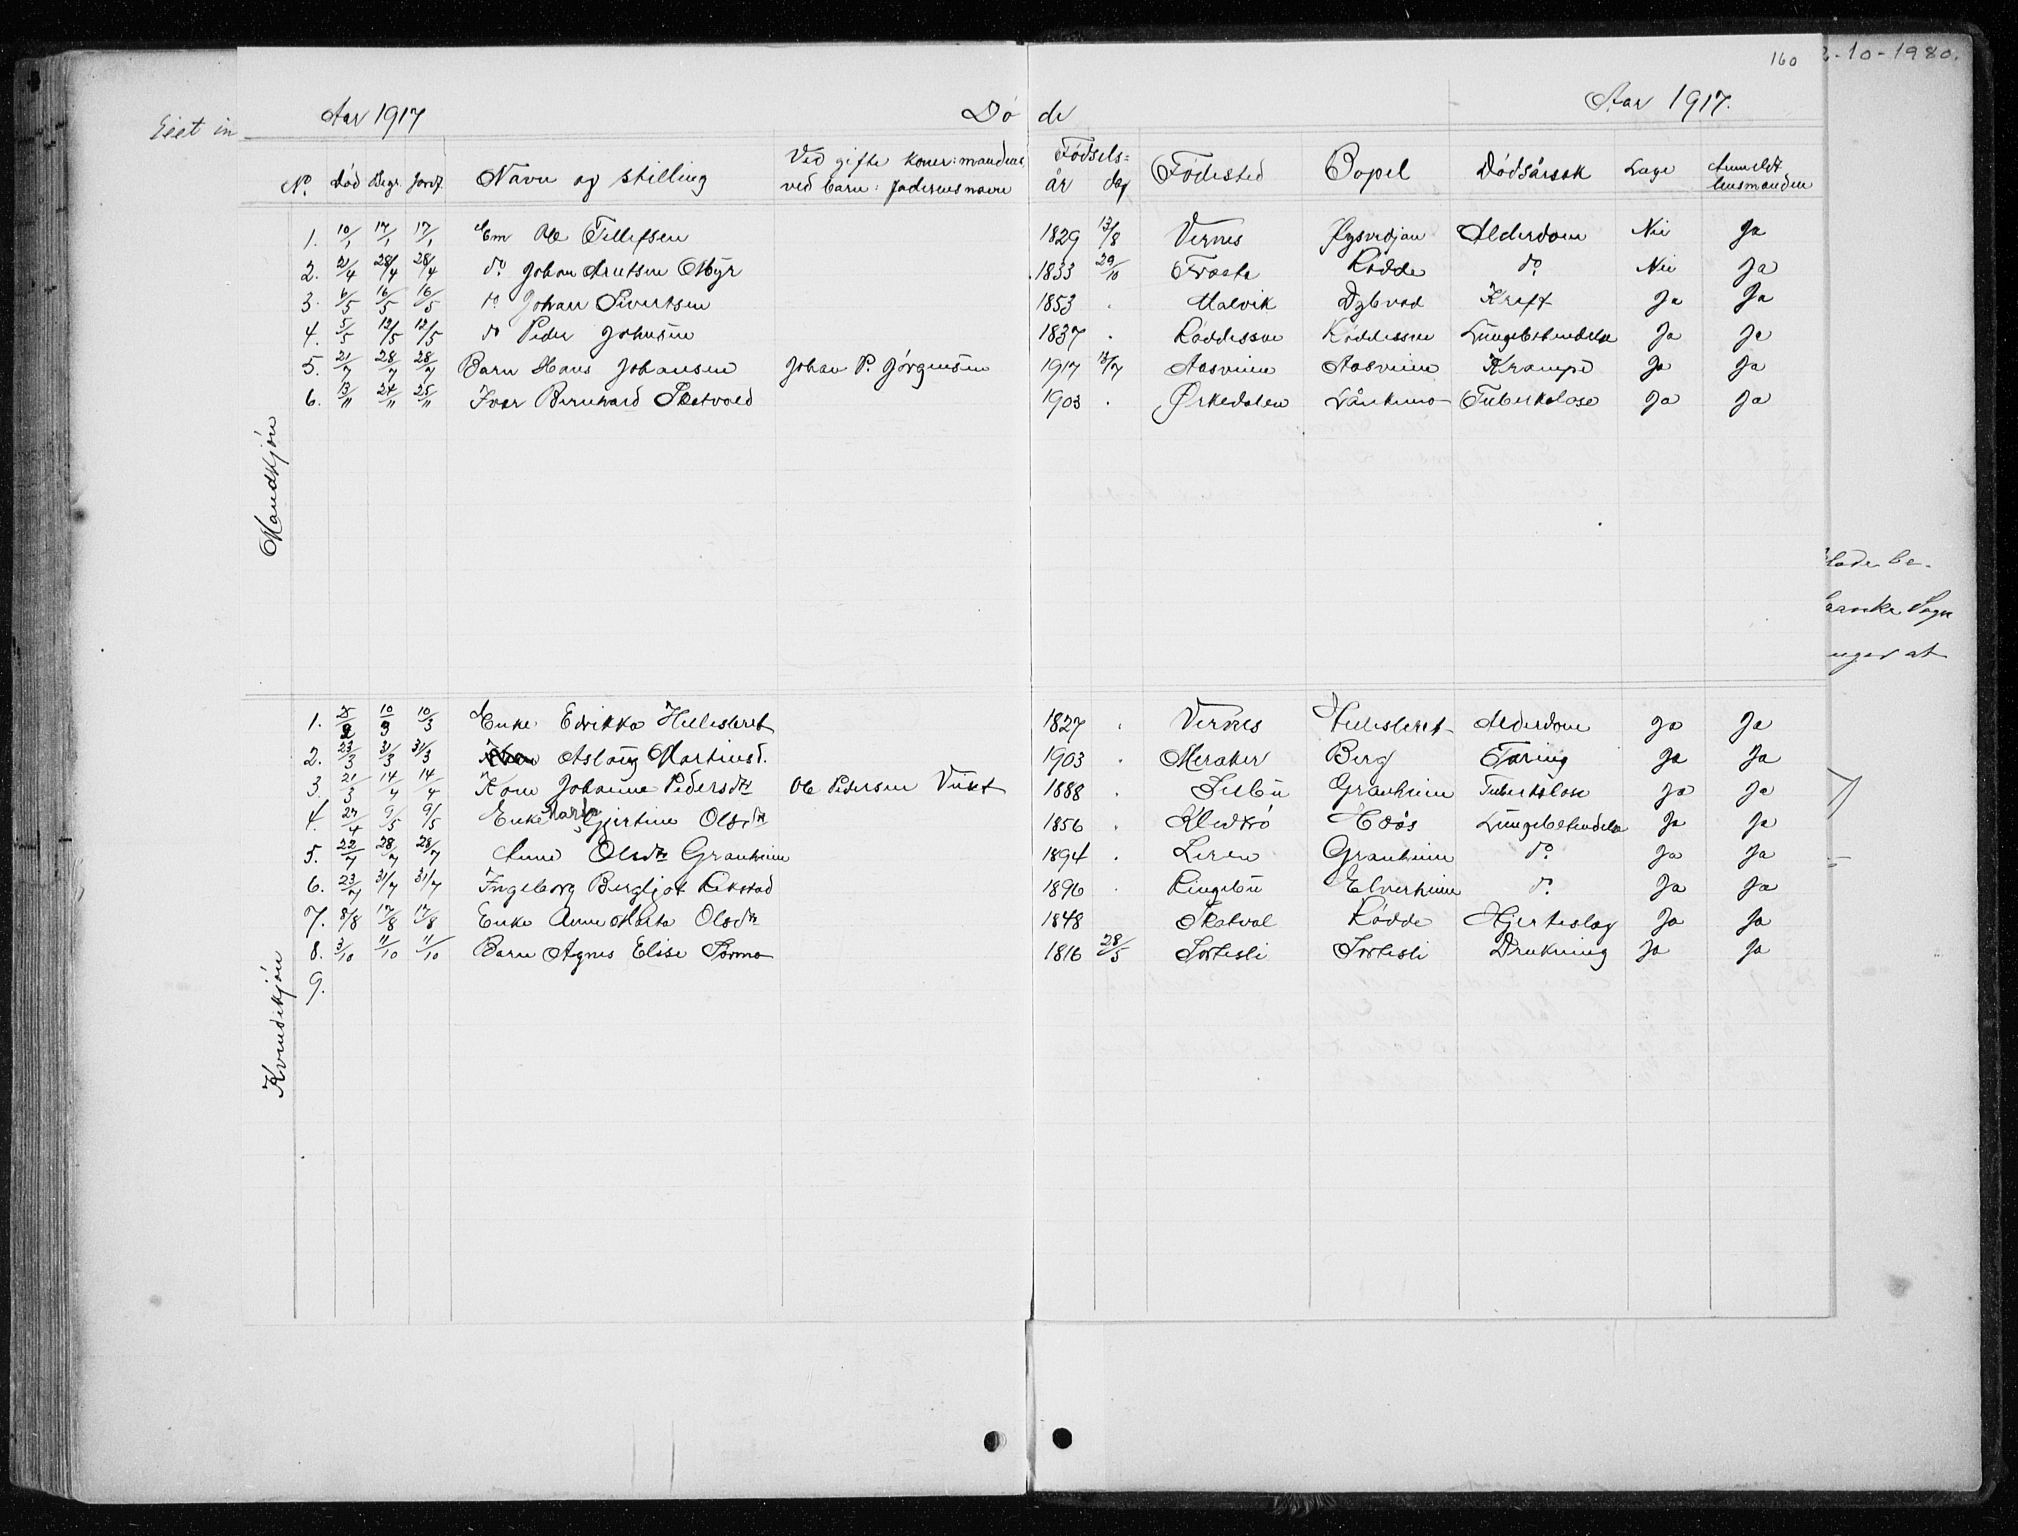 160
2-10-1980.
Eiet in
Aar 1917 Døde Aar 1917.
No. Død Begr. Jordf. Navn og stilling Ved gifte Koner: mandens ved barn: faderens navn Fødsels= år dag Fødested Bopel Dødsårsak Læge Anmeldt lensmanden
Mandkjøn
1. 10/1 17/1 17/1 Em Ole Tellefsen 1829 13/8 Vernes Alderdom Nei Ja
2. 21/4 28/4 28/4 do. Johan Arntsen Myr 1833 29/10 Frosta Rødde do. Nei Ja
3. 6/5 16/5 16/5 do Johan Sivertsen 1853 . Malvik Dybvad Kreft Ja Ja
4. 5/5 12/5 12/5 do Peder Johnsen 1837 . Røddesson Røddesson Lungebetendelse Ja Ja
5. 21/7 28/7 28/7 Barn Hans Johansen Johan P. Jørgensen 1917 13/7 Aasheim Aasheim Krampe Ja Ja
6. 13/11 24/11 25/11 Ivar Bernhard Skatvold 1903 . Ørkedalen Lånkemo Tuberkolose Ja Ja
lade be-
Sogn
nger at
Kvindekjøn
1. 10/3 10/3 Enke Edrikka Hellesteret 1827 . Vernes Hellesteret Alderdom Ja Ja
2. 23/3 31/3 31/3 Aslaug Martinsd. 1903 . Meraker Berg Tæring Ja Ja
3. 21/3 14/4 14/4 Kone Johanna Pedersdtr Ole Pedersen 1888 . Selbu Granheim Tuberkolose Ja Ja
4. 27/4 9/5 9/5 Enke Marta Gjertine Olsdtr 1856 . Lungebetendelse Ja Ja
5. 22/7 28/7 28/7 Anne Olsdtr Granheim 1894 . Leren Granheim do. Ja Ja
6. 23/7 31/7 31/7 Ingeborg Bergljot Rekstad 1896 . Ringebu Elverheim do. Ja Ja
7. 8/8 17/8 17/8 Enke Anne Marta Olsdtr 1848 Skatval Rødde Hjerteslag Ja Ja
8. 3/10 11/10 11/10 Barn Agnes Elise Sormo 1816 28/5 Sorteli Sorteli Drukning Ja Ja
9.